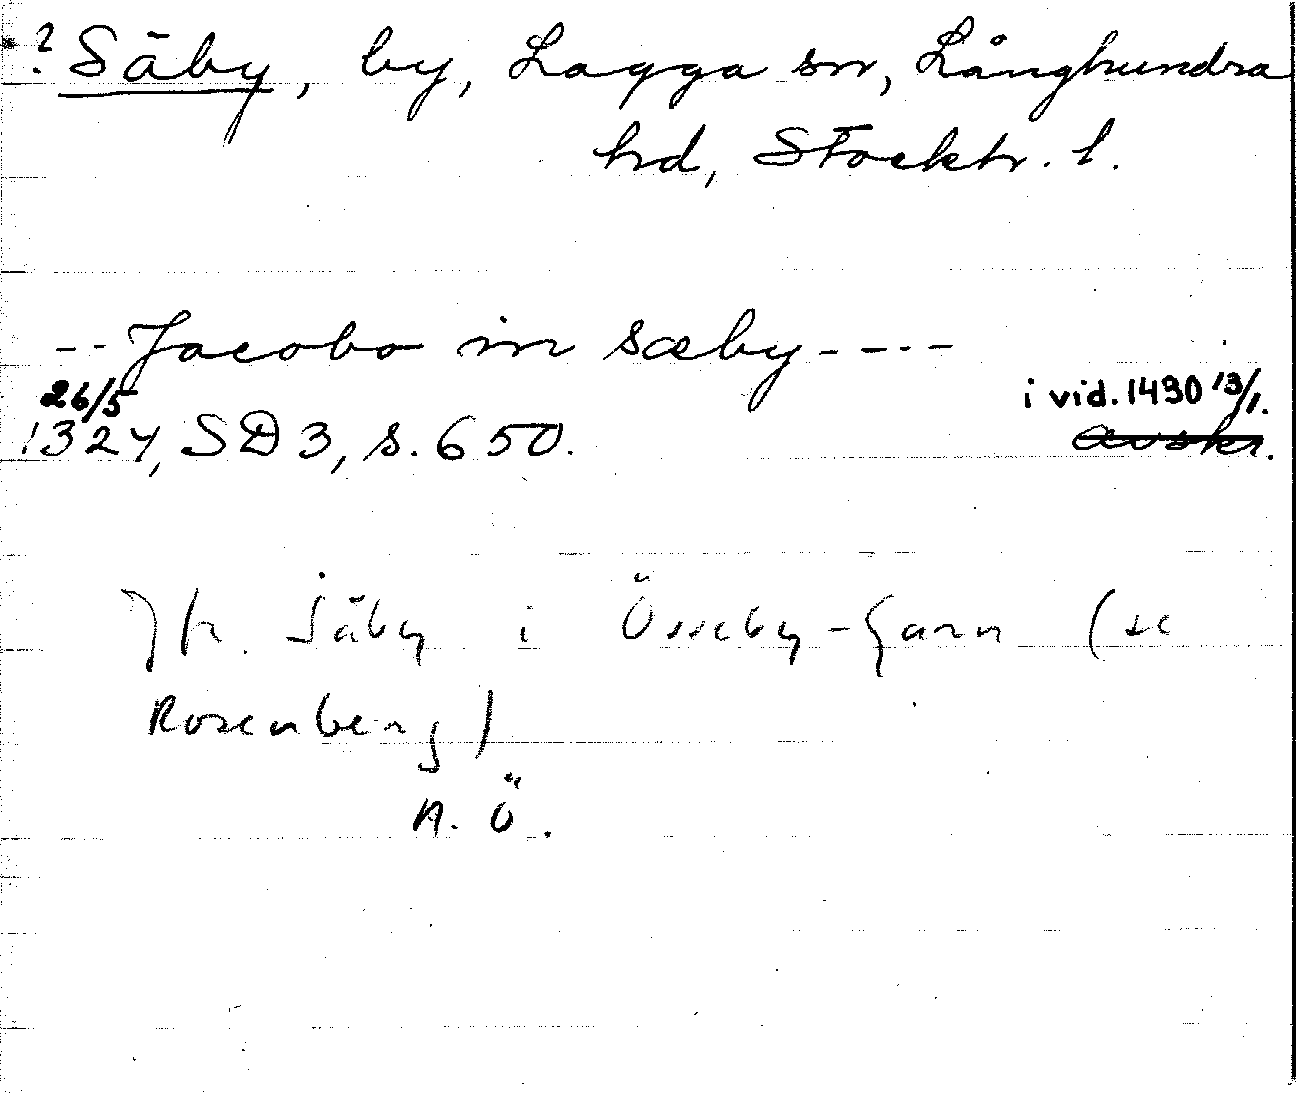 ? Säby, by, Lagga sn, Långhundra
hd, Stockh. l.
-- Jacobo in sæby ----
26/5
i vid. 1490 13/1.
1327, SD 3, s. 650.
avskr.
Jfr. Säby i Össeby-Garn (se
Rosenberg)
A. Ö.